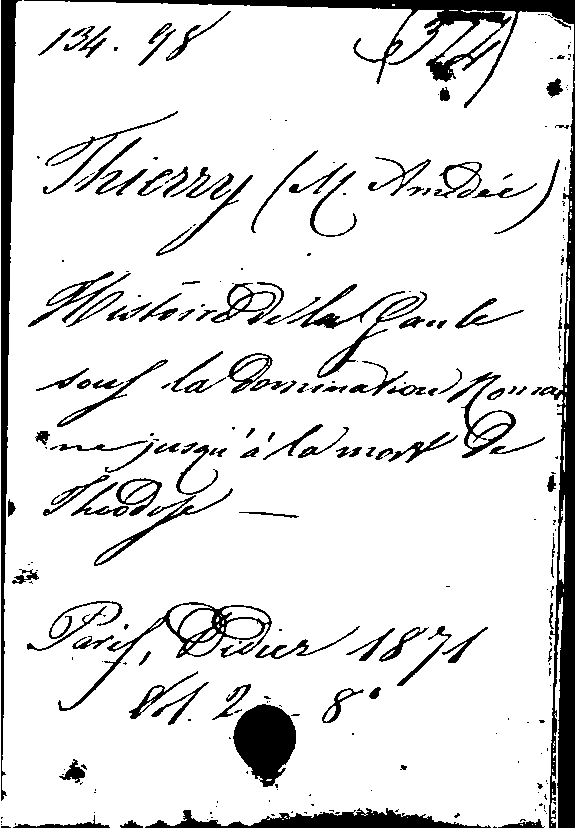 134. 98 (324)
Thierry (M. Amédée)
Histoire de la Gaule
sous la domination Romai
ne jusqu'à la mort de
Théodose —
Paris, Didier 1871
Vol. 2 - 8°